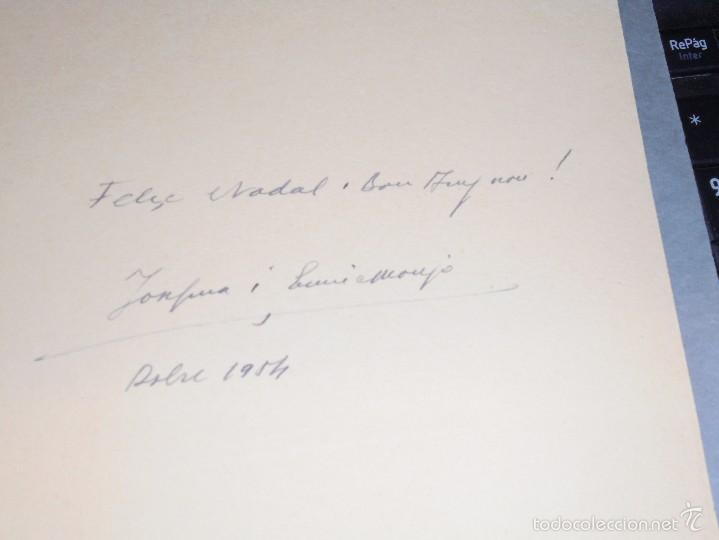 Feliç Nadal i Bon Any nou!
Josefina i Enric Monjo
Dbre 1954
RePág
Inter
*
9
todocoleccion.net